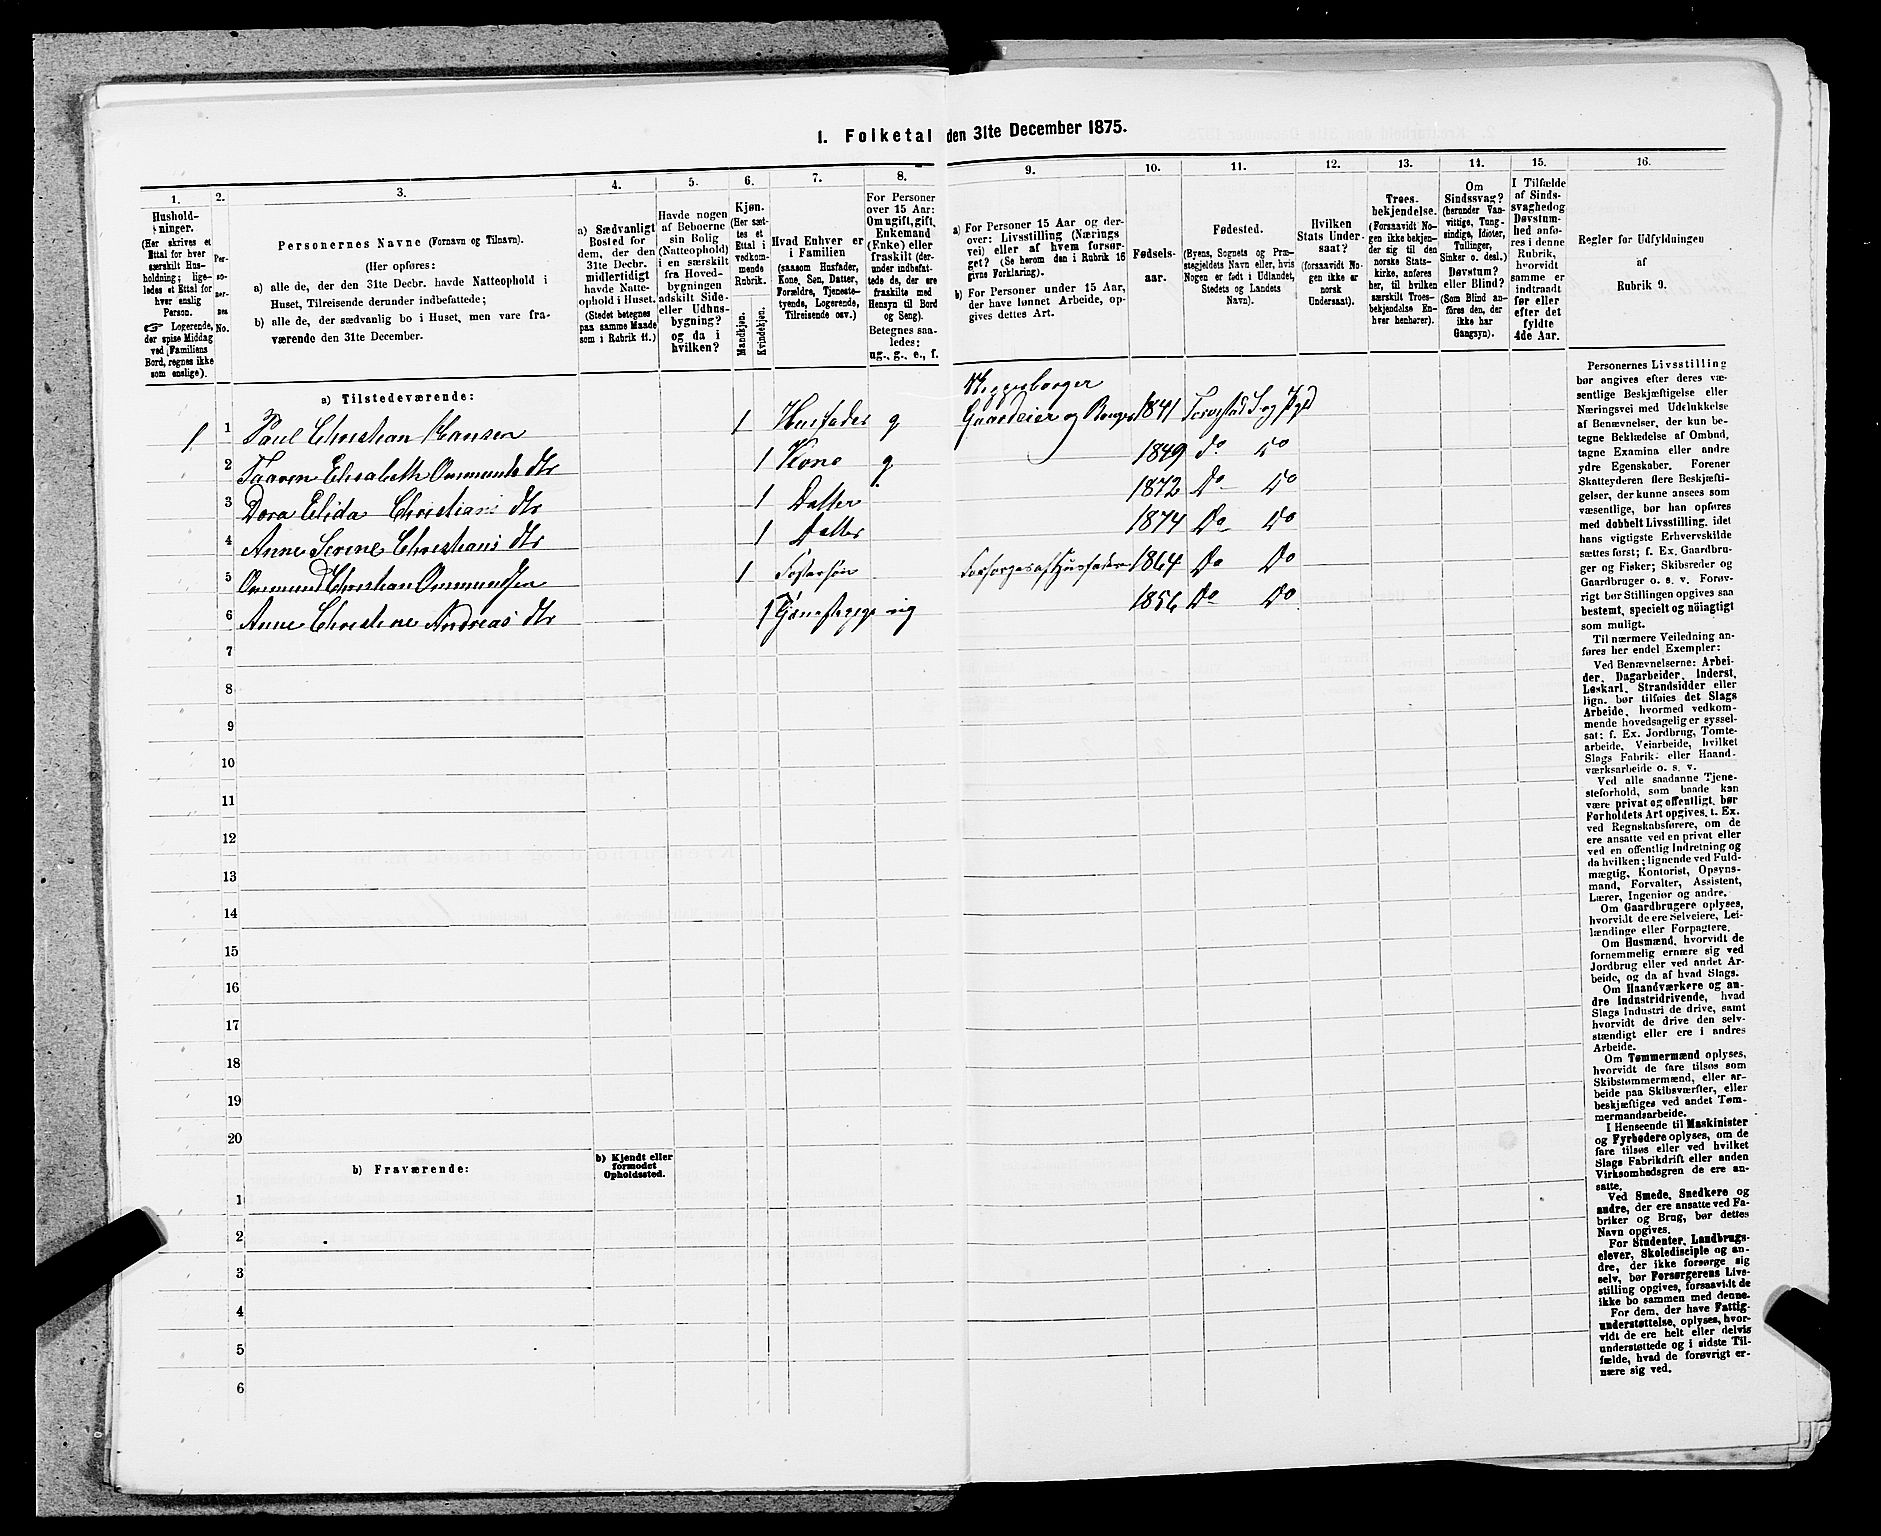 1. Folketal den 31te December 1875.
1. 2. 3. 4. 5. 6. 7. 8. 9. 10. 11. 12. 13. 14. 15. 16.
Hushold-
ninger.
(Her skrives et
Ettal for hver
særskilt Hus-
holdning; lige-
ledes et Ettal for
hver enslig
Person.
☞ Logerende,
der spise Middag
ved Familiens
Bord, regnes ikke
som enslige).
Per-
so-
ner-
nes
No.
Personernes Navne (Fornavn og Tilnavn).
(Her opføres:
a) alle de, der den 31te Decbr. havde Natteophold i
Huset, Tilreisende derunder indbefattede;
b) alle de, der sædvanlig bo i Huset, men vare fra-
værende den 31te December.
a) Sædvanligt
Bosted for
dem, der den
31te Decbr.
midlertidigt
havde Natte-
ophold i Huset.
(Stedet betegnes
paa samme Maade
som i Rubrik 11.)
Havde nogen
af Beboerne
sin Bolig
(Natteophold)
i en særskilt
fra Hoved-
bygningen
adskilt Side-
eller Udhus-
bygning?
og da i
hvilken?
Kjøn.
(Her sæt-
tes et
Ettal i
vedkom-
mende
Rubrik.
Mandkjøn.
Kvindekjøn.
Hvad Enhver er
i Familien
(saasom Husfader,
Kone, Søn, Datter,
Forældre, Tjeneste-
tyende, Logerende,
Tilreisende osv.)
For Personer
over 15 Aar:
Om ugift, gift,
Enkemand
(Enke) eller
fraskilt (der-
under indbefat-
tede de, der ere
fraskilte med
Hensyn til Bord
og Seng).
Betegnes saa-
ledes:
ug., g., e., f.
a) For Personer 15 Aar og der-
over: Livsstilling (Nærings-
vei) eller af hvem forsør-
get? (Se herom den i Rubrik 16
givne Forklaring).
b) For Personer under 15 Aar,
der have lønnet Arbeide, op-
gives dettes Art.
Fødsels-
aar.
Fødested.
(Byens, Sognets og Præ-
stegjeldets Navn eller, hvis
Nogen er født i Udlandet,
Stedets og Landets
Navn).
Hvilken
Stats Under-
saat?
(forsaavidt No-
gen ikke er
norsk
Undersaat).
Troes-
bekjendelse.
(Forsaavidt No-
gen ikke bekjen-
der sig til den
norske Stats-
kirke, anføres
her, til hvilken
særskilt Troes-
bekjendelse En-
hver henhører).
Om
Sindssvag?
(herunder Van-
vittige, Tung-
sindige, Idioter,
Tullinger,
Sinker o. desl.)
Døvstum?
eller Blind?
(Som Blind an-
føres den, der
ikke har
Gangsyn).
I Tilfælde
af Sinds-
svaghed og
Døvstum-
hed anfø-
res i denne
Rubrik,
hvorvidt
samme er
indtraadt
før eller
efter det
fyldte
4de Aar.
Regler for Udfyldningen
af
Rubrik 9.
a) Tilstedeværende:
1 1 Paul Christian Hansen 1 Husfader g Gaardeier og 1841 Torvestad S og Pgd
2 Elisabeth Ommunds dtr 1 Kone g 1849 do do
3 Dora Elida Christians dtr 1 Datter 1872 Do do
4 Anne Serine Christians dtr 1 Datter 1874 Do do
5 Ommund Christian Ommundsen 1 Fostersøn Forsørges af Husfaderen 1864 Do Do
6 Anne Christine Andreas dtr 1 Tjenestepige ug 1856 Do Do
7
8
9
10
11
12
13
14
15
16
17
18
19
20
b) Fraværende:
b) Kjendt eller
formodet
Opholdssted.
1
2
3
4
5
6
Personernes Livsstilling
bør angives efter deres væ-
sentlige Beskjæftigelse eller
Næringsvei med Udelukkelse
af Benævnelser, der kun be-
tegne Beklædelse af Ombud,
tagne Examina eller andre
ydre Egenskaber. Forener
Skatteyderen flere Beskjæfti-
gelser, der kunne ansees som
væsentlige, bør han opføres
med dobbelt Livsstilling, idet
hans vigtigste Erhvervskilde
sættes først; f. Ex. Gaardbru-
ger og Fisker; Skibsreder og
Gaardbruger o. s. v. Forøv-
rigt bør Stillingen opgives saa
bestemt, specielt og nøiagtigt
som muligt.
Til nærmere Veiledning an-
føres her endel Exempler:
Ved Benævnelserne: Arbei-
der, Dagarbeider, Inderst,
Løskarl, Strandsidder eller
lign. bør tilføies det Slags
Arbeide, hvormed vedkom-
mende hovedsagelig er syssel-
sat; f. Ex. Jordbrug, Tomte-
arbeide, Veiarbeide, hvilket
Slags Fabrik- eller Haand-
værksarbeide o. s. v.
Ved alle saadanne Tjene-
steforhold, som baade kan
være privat og offentligt, bør
Forholdets Art opgives, t. Ex.
ved Regnskabsførere, om de
ere ansatte ved en privat eller
ved en offentlig Indretning og
da hvilken; lignende ved Fuld-
mægtig, Kontorist, Opsyns-
mand, Forvalter, Assistent,
Lærer, Ingeniør og andre.
Om Gaardbrugere oplyses,
hvorvidt de ere Selveiere, Lei-
lændinge eller Forpagtere.
Om Husmænd, hvorvidt de
fornemmelig ernære sig ved
Jordbrug eller ved andet Ar-
beide, og da af hvad Slags.
Om Haandværkere og an-
dre Industridrivende, hvad
Slags Industri de drive, samt
hvorvidt de drive den selv-
stændigt eller ere i andres
Arbeide.
Om Tømmermænd oplyses,
hvorvidt de fare tilsøs som
Skibstømmermænd, eller ar-
beide paa Skibsværfter, eller
beskjæftiges ved andet Tøm-
mermandsarbeide.
I Henseende til Maskinister
og Fyrbødere oplyses, om de
fare tilsøs eller ved hvilket
Slags Fabrikdrift eller anden
Virksomhedsgren de ere an-
satte.
Ved Smede, Snedkere og
andre, der ere ansatte ved Fa-
briker og Brug, bør dettes
Navn opgives.
For Studenter, Landbrugs-
elever, Skoledisciple og an-
dre, der ikke forsørge sig
selv, bør Forsørgerens Livs-
stilling opgives, forsaavidt de
ikke bo sammen med denne.
For dem, der have Fattig-
understøttelse, oplyses, hvor-
vidt de ere helt eller delvis
understøttede og i sidste Til-
fælde, hvad de forøvrigt er-
nære sig ved.